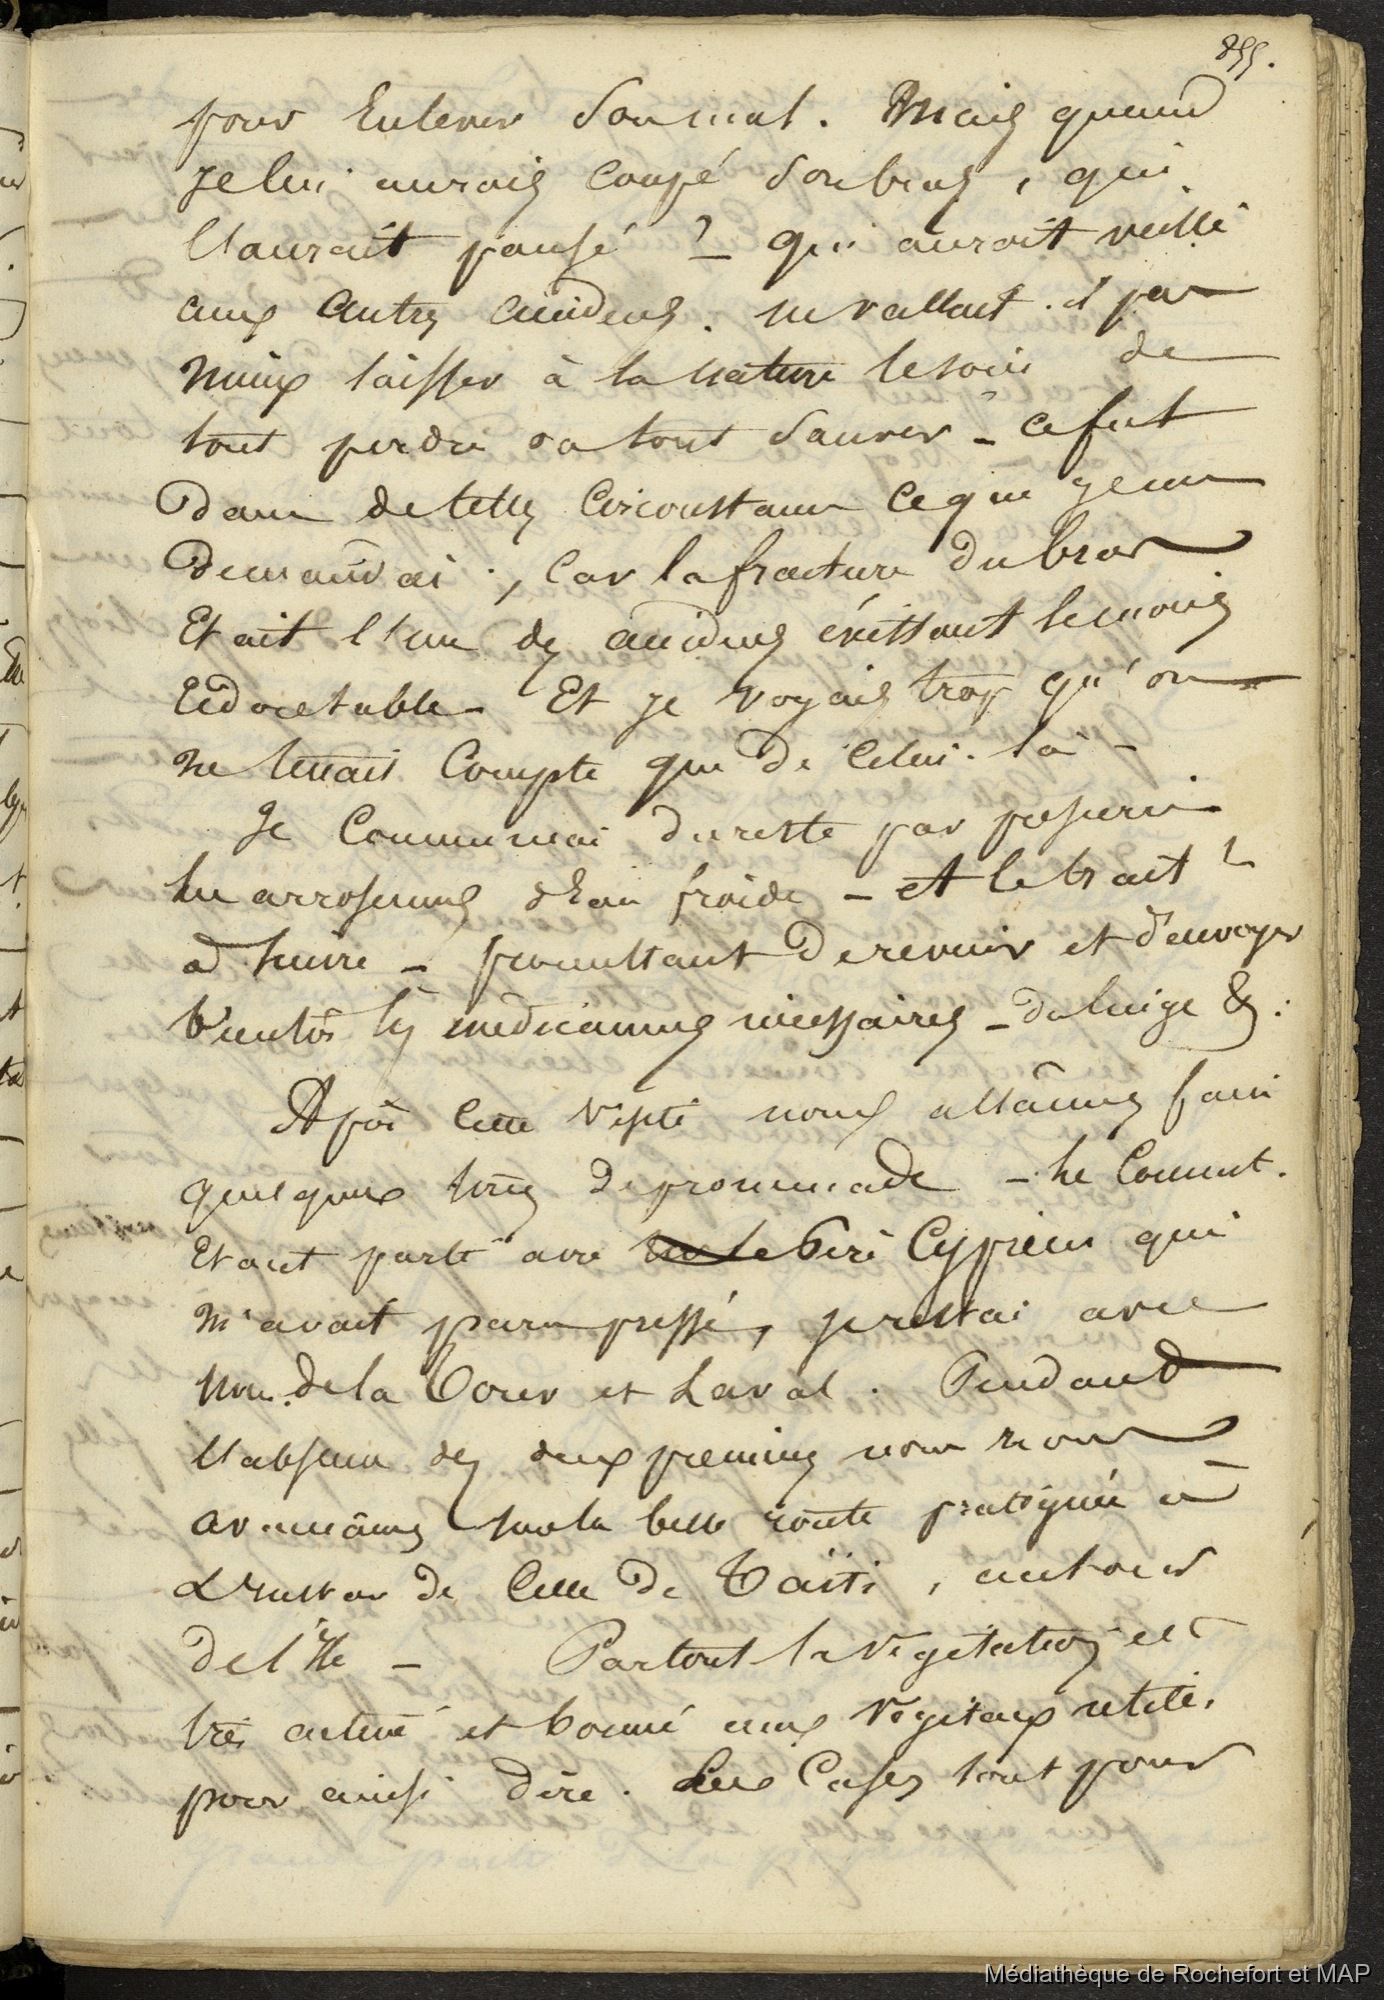 855.
pour Enlever son mal. Mais quand
je lui aurais coupé son bras, qui
l'aurait pansé ? qui aurait veillé
aux autres accidens. ne vallait-il pas
mieux laisser à la nature le soin de
tout perdre ou tout sauver - ce fut
dans de telles circonstances ce que je me
demandai, car la fracture du bras
Etait l'un des accidens existant le moins
redoutable - Et je voyais trop qu'on
ne tenait compte que de celui-là -
Je commencai du reste par prescrire
les arrosemens d'Eau froide - et le trait
à suivre - promettant de revenir et d'envoyer
bientôt les médicamens nécessaires - du linge &.
Après cette visite nous allâmes faire
quelques tours de promenade - le Commt.
Etant parti avec le Père Cyprien qui
m'avait paru pressé, je restai avec
mm. de la Tour et Laval. Pendant
l'absence des deux premiers nous nous
avancâmes sur la belle route pratiquée à
L'instar de celle de Taïti, autour
de l'île - Partout la végétation est
très active et bornée aux végétaux utiles,
pour ainsi dire. Les Cases sont pour
Médiathèque de Rochefort et MAP